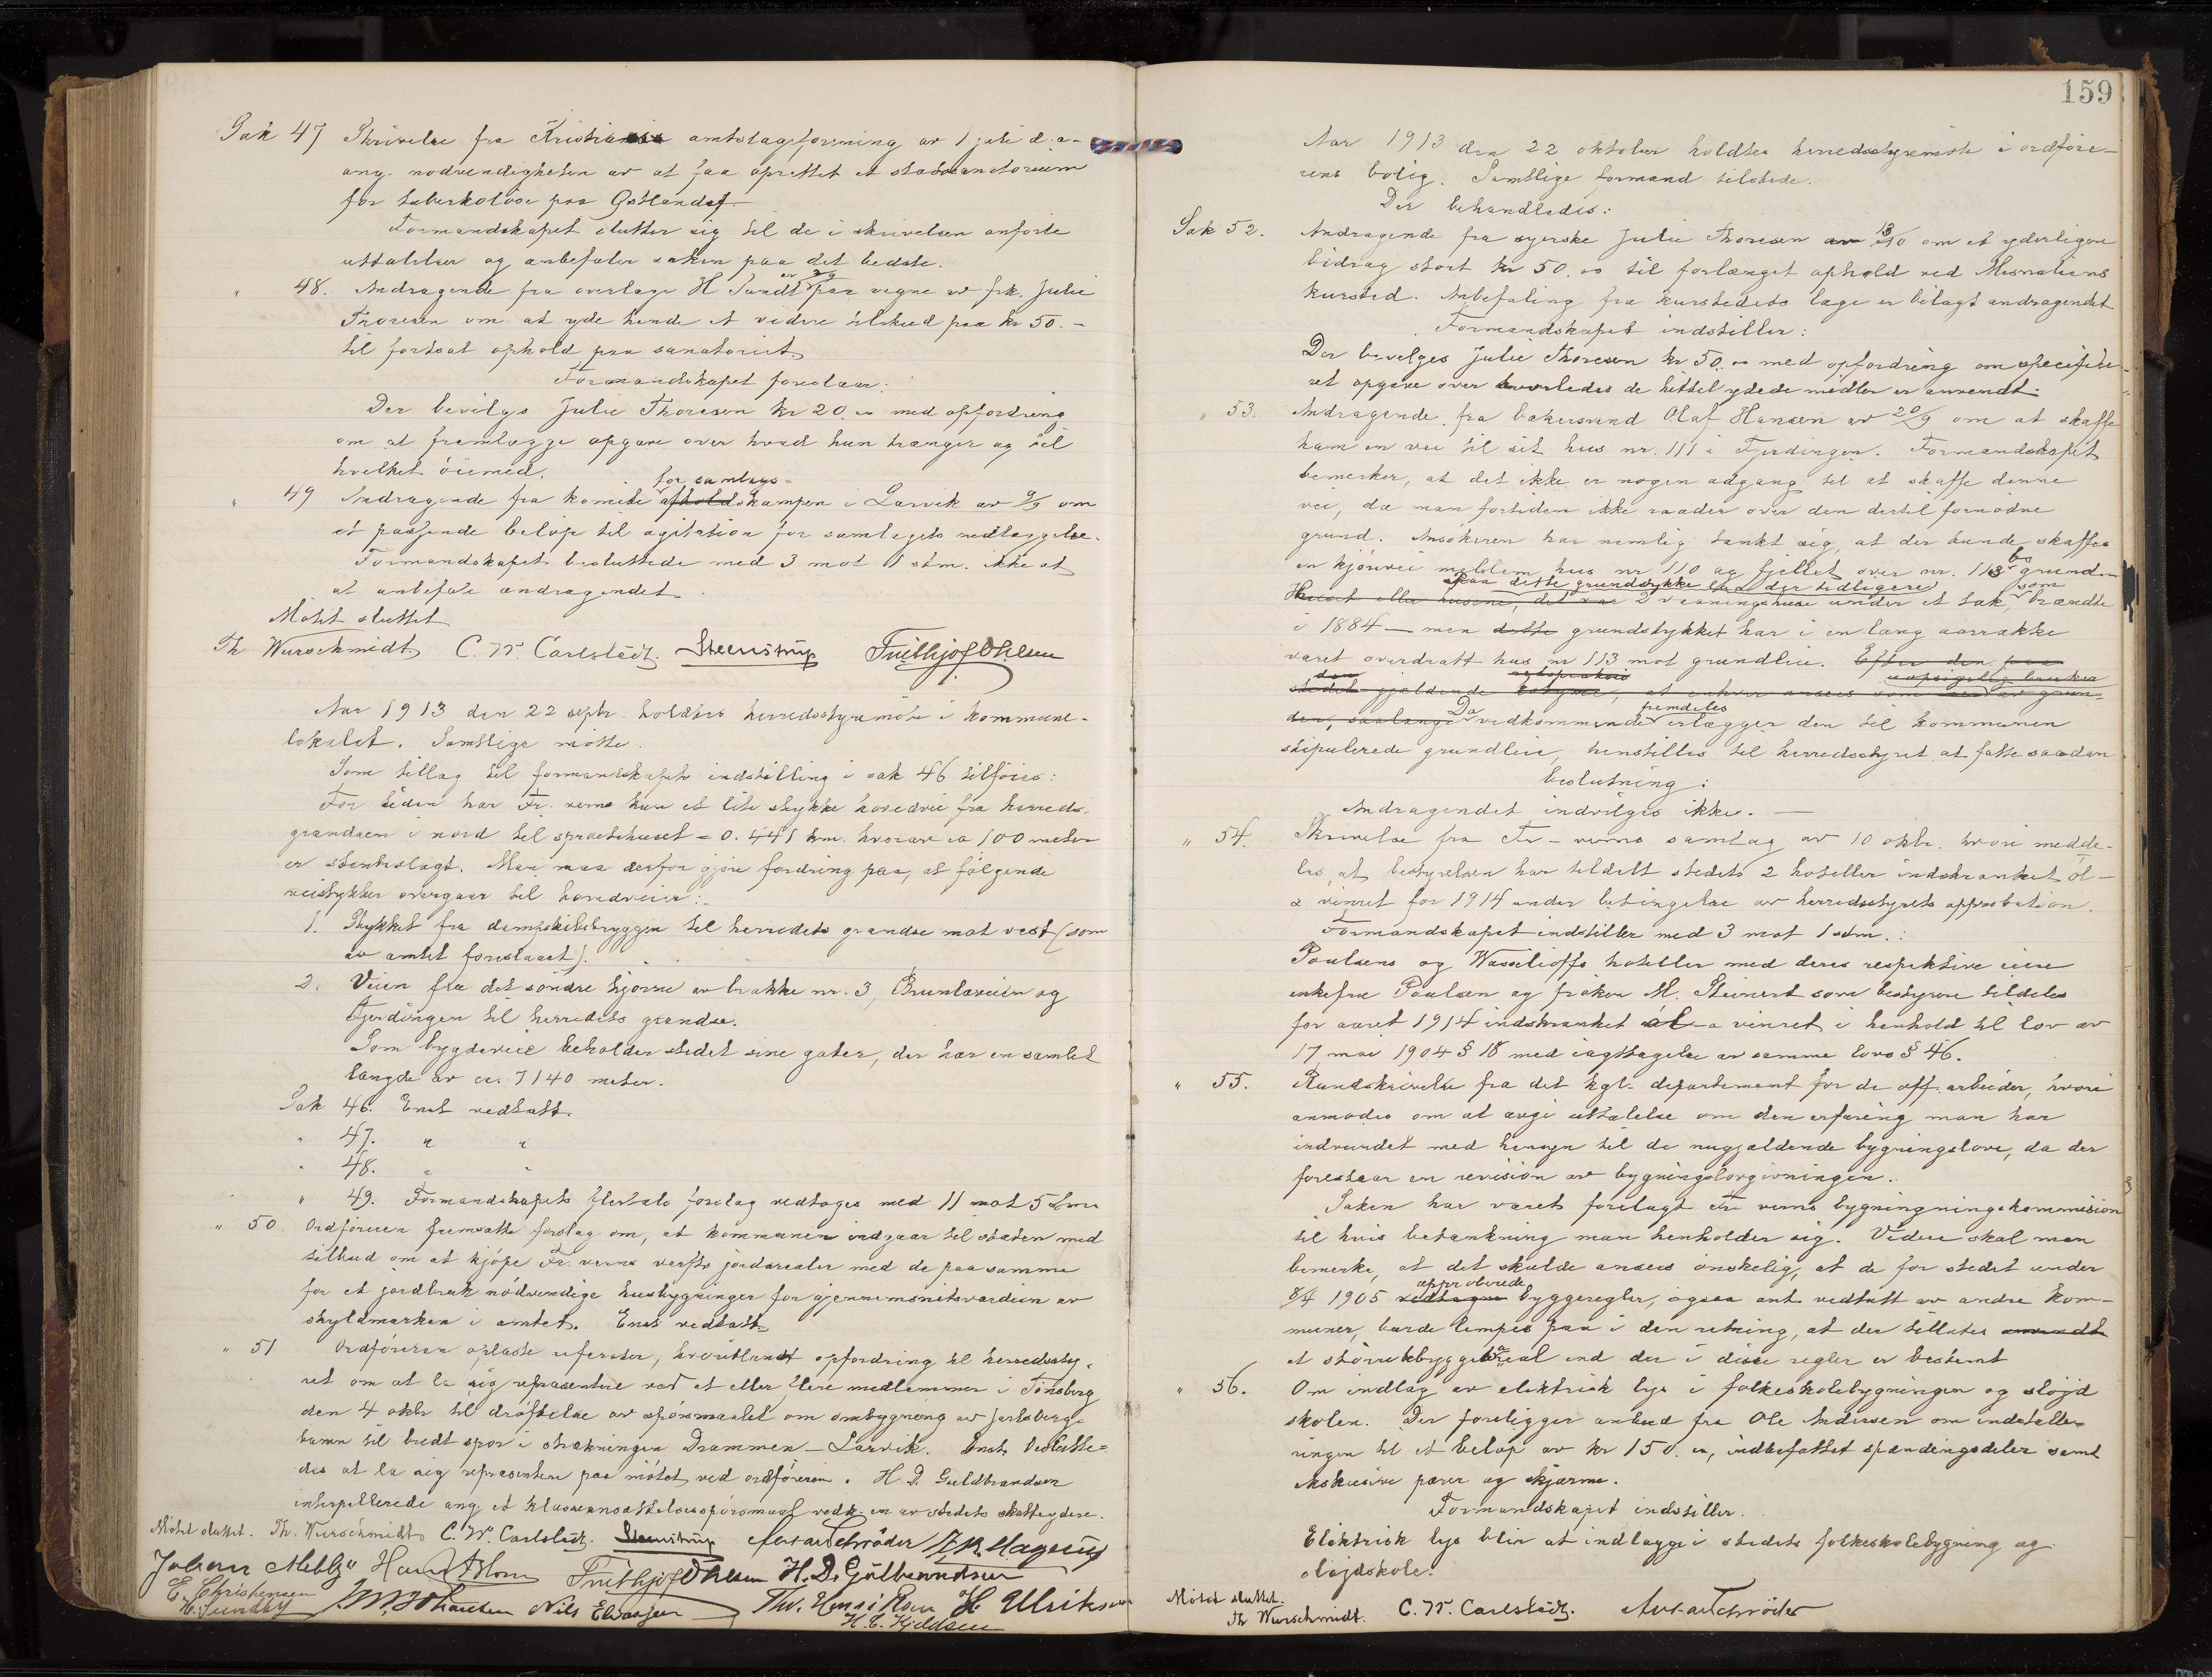 Sak 47 Skrivelse fra Kristiania amtslægeforening av 1 juli d.a.
ang. nødvendigheten av at faa oprettet et statssanatorium
for tuberkuløse paa Østlandet.
Formandskapet slutter sig til de i skrivelsen anførte
uttalelser og anbefaler saken paa det bedste.
" 48. Andragende fra overlæge H Sundt av 2/9 paa vegne av frk. Julie
Thoresen om at yde hende et videre tilskud paa kr 50.–
til fortsat ophold paa sanatoriet.
Formandskapet foreslaar:
Der bevilges Julie Thoresen kr 20.oo med opfordring
om at fremlægge opgave over hvad hun trænger og til
hvilket øiemed.
for samlags-
" 49 Andragende fra komite afholdskampen i Larvik av 9/9 om
et passende beløp til agitation for samlagets nedlæggelse.
Formandskapet besluttede med 3 mot 1 stm. ikke at
at anbefale andragendet.
Møtet sluttet
Th Wurschmidt C. W. Carlstedt. Steenstrup Fritthjof Ohlsen
Aar 1913 den 22 septr. holdtes herredsstyremøte i kommune-
lokalet. Samtlige møtte.
Som tillæg til formandskapets indstilling i sak 46 tilføies:
For tiden har Fr. værns kun et lite stykke hovedvei fra herreds-
grændsen i nord til sprøitehuset = 0.441 km. hvorav ca 100 meter
er stenbrolagt. Man maa derfor gjøre fordring paa, at følgende
veistykker overgaar til hovedveier:
1. Stykket fra dampskibsbryggen til herredets grændse mot vest (som
av amtet foreslaaet).
2. Veien fra det søndre hjørne av brakke nr. 3, Brunlaveien og
Fjerdingen til herredets grændse.
Som bygdeveie beholder stedet sine gater, der har en samlet
længde av ca. 7140 meter.
Sak 46. Enst vedtatt.
" 47. " "
" 48. " "
" 49. Formandskapets flertals forslag vedtages med 11 mot 5 stm
" 50. Ordføreren fremsatte forslag om, at kommunen indgaar til staten med
tilbud om at kjøpe Fr. værns verfts jordarealer med de paa samme
for et jordbruk nødvendige husbygninger for gjennemsnitsværdien av
skyldmarken i amtet. Enst vedtatt.
" 51 Ordføreren oplæste referater, hvoriblandt opfordring til herredssty-
ret om at la sig repræsentere ved et eller flere medlemmer i Tønsberg
den 4 oktbr til drøftelse av spørsmaalet om ombygning av Jarlsberg-
banen til bredt spor i strækningen Drammen – Larvik. Enst. beslutte-
des at la sig repræsentere paa møtet ved ordføreren. H. D. Guldbrandsen
interpellerede ang. et klasseansættelsesspørsmaal vedk. en av stedets skatteydere.
Møtet sluttet. Th. Wurschmidt C. W. Carlstedt. Steenstrup Schrøder
Johan Fritthjof Ohlsen H. D. Gulbrandsen
E. Christensen Nils Eliassen Thv. H. Ulriksen
H. Sundby H. C. Kjeldsen
159
Aar 1913 den 22 oktober holdtes herredsstyremøte i ordføre-
rens bolig. Samtlige formænd tilstede.
Der behandledes:
Sak 52. Andragende fra syerske Julie Thoresen av 13/10 om et yderligere
bidrag stort kr 50.oo til forlænget ophold ved Mesnaliens
kursted. Anbefaling fra kurstedets læge er bilagt andragendet
Formandskapet indstiller:
Der bevilges Julie Thoresen kr 50.oo med opfordring om specifice-
ret opgave over hvorledes de hittil ydede midler er anvendt.
" 53. Andragende fra bakersvend Olaf Hansen av 20/9 om at skaffe
ham en vei til sit hus nr. 111 i Fjerdingen. Formandskapet
bemerker, at det ikke er nogen adgang til at skaffe denne
vei, da man fortiden ikke raader over den dertil fornødne
grund. Ansøkeren har nemlig tænkt sig, at der kunde skaffes
en kjørevei mellem hus nr 110 og fjellet over nr. 113 bs grund.
Paa dette grundstykke laa der tidligere
Huset eller husene, det var 2 vaaningshuse under et tak, som brændte
i 1884 – men dette grundstykket har i en lang aarrække
været overdratt hus nr 113 mot grundleie. Efter den paa
stedet gjældende at enhver ansees som av grun-
den, saalænge Da vedkommende fremdeles erlægger den til kommunen
stipulerede grundleie, henstilles til herredsstyret at fatte saadan
beslutning:
Andragendet indvilges ikke. –
" 54. Skrivelse fra Fr-værns samlag av 10 oktbr. hvori medde-
les, at bestyrelsen har tildelt stedets 2 hoteller indskrænket øl-
& vinret for 1914 under betingelse av herredsstyrets approbation.
Formandskapet indstiller med 3 mot 1 stm.:
Poulsens og Wassilioffs hoteller med deres respektive eiere
enkefru Poulsen og frøken M. Steinert som bestyrere tildeles
for aaret 1914 indskrænket øl- & vinret i henhold til lov av
17 mai 1904 § 18 med iagttagelse av samme lovs § 46.
" 55. Rundskrivelse fra det kgl. departement for de off. arbeider, hvori
anmodes om at avgi uttalelse om den erfaring man har
indvundet med hensyn til de nugjældende bygningslove, da der
forestaar en revision av bygningslovgivningen.
Saken har været forelagt Fr. værns bygningningskommission
til hvis betænkning man henholder sig. Videre skal man
bemerke, at det skulde ansees ønskelig, at de for stedet under
8/4 1905 vedtagne approberede byggeregler, ogsaa ant. vedtatt av andre kom-
muner, burde lempes paa i den retning, at der tillates anvendt
et større bebygget areal end der i disse regler er bestemt
" 56. Om indlæg av elektrisk lys i folkeskolebygningen og sløjd
skolen. Der foreligger anbud fra Ole Andersen om indstalle-
ringen til et beløp av kr 150.oo, indbefattet spændingsdeler samt
ekskusive pærer og skjærme.
Formandskapet indstiller.
Elektrisk lys blir at indlægge i stedets folkeskolebygning og
sløjdskole.
Møtet sluttet.
Th Wurschmidt. C. W. Carlstedt. Schrøder